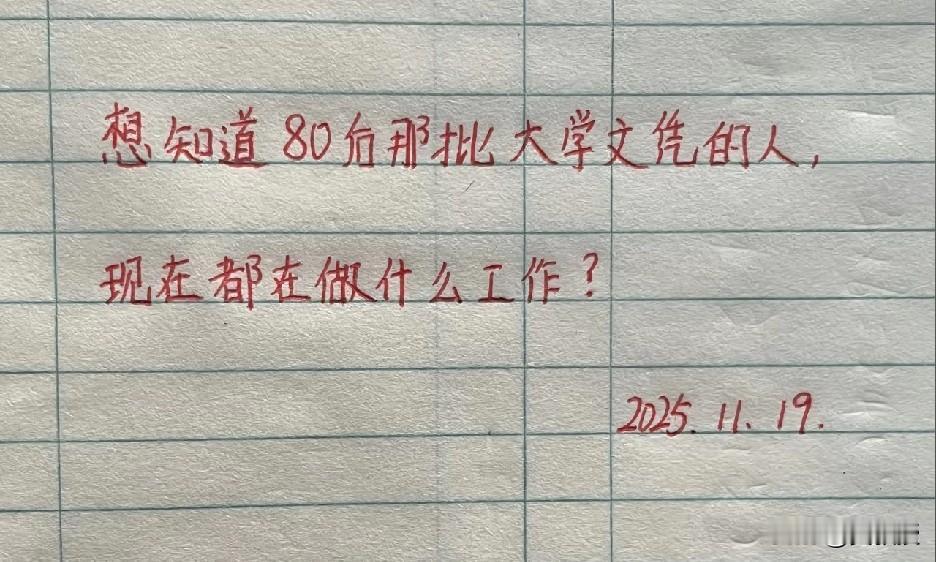 想知道80后那批大学文凭的人,
现在都在做什么工作?
2025.11.19.